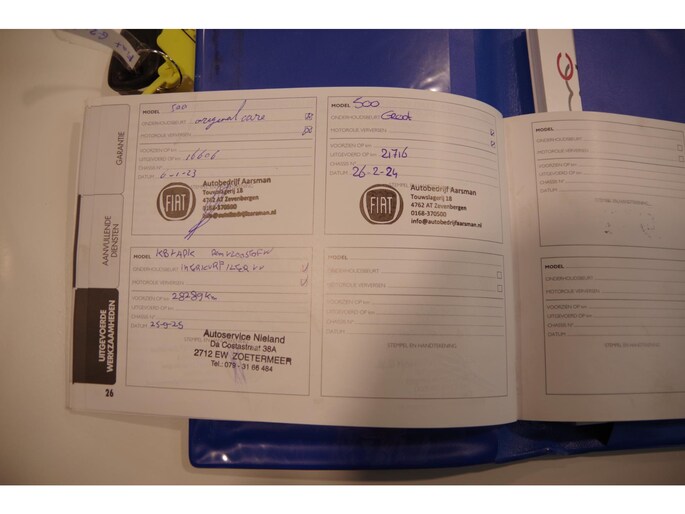 GARANTIE
AANVULLENDE
DIENSTEN
UITGEVOERDE
WERKZAAMHEDEN
26
MODEL 500
ONDERHOUDSBEURT original care
MOTOROLIE VERVERSEN
VOORZIEN OP km
UITGEVOERD OP km 16606
CHASSIS Nr
DATUM
FIAT
Autobedrijf Aarsman
Touwslagerij 18
4762 AT Zevenbergen
0168-370500
info@autobedrijfaarsman.nl
MODEL 500
ONDERHOUDSBEURT Groot
MOTOROLIE VERVERSEN
VOORZIEN OP km
UITGEVOERD OP km 21716
CHASSIS Nr
DATUM 26-2-24
FIAT
Autobedrijf Aarsman
Touwslagerij 18
4762 AT Zevenbergen
0168-370500
info@autobedrijfaarsman.nl
MODEL
ONDERHOUDSBEURT
MOTOROLIE VERVERSEN
VOORZIEN OP km 28289 km
UITGEVOERD OP km
CHASSIS Nr
DATUM 25-9-25
Autoservice Nieland
Da Costastraat 38A
2712 EW ZOETERMEER
Tel.: 079 - 31 66 464
MODEL
ONDERHOUDSBEURT
MOTOROLIE VERVERSEN
VOORZIEN OP km
UITGEVOERD OP km
CHASSIS Nr
DATUM
STEMPEL EN HANDTEKENING
MODEL
ONDERHOUDSBEURT
MOTOROLIE VERVERSEN
VOORZIEN OP km
UITGEVOERD OP km
CHASSIS Nr
DATUM
MODEL
ONDERHOUDSBEURT
MOTOROLIE VERVERSEN
VOORZIEN OP km
UITGEVOERD OP km
CHASSIS Nr
DATUM
STEMPEL EN HANDTEKENING